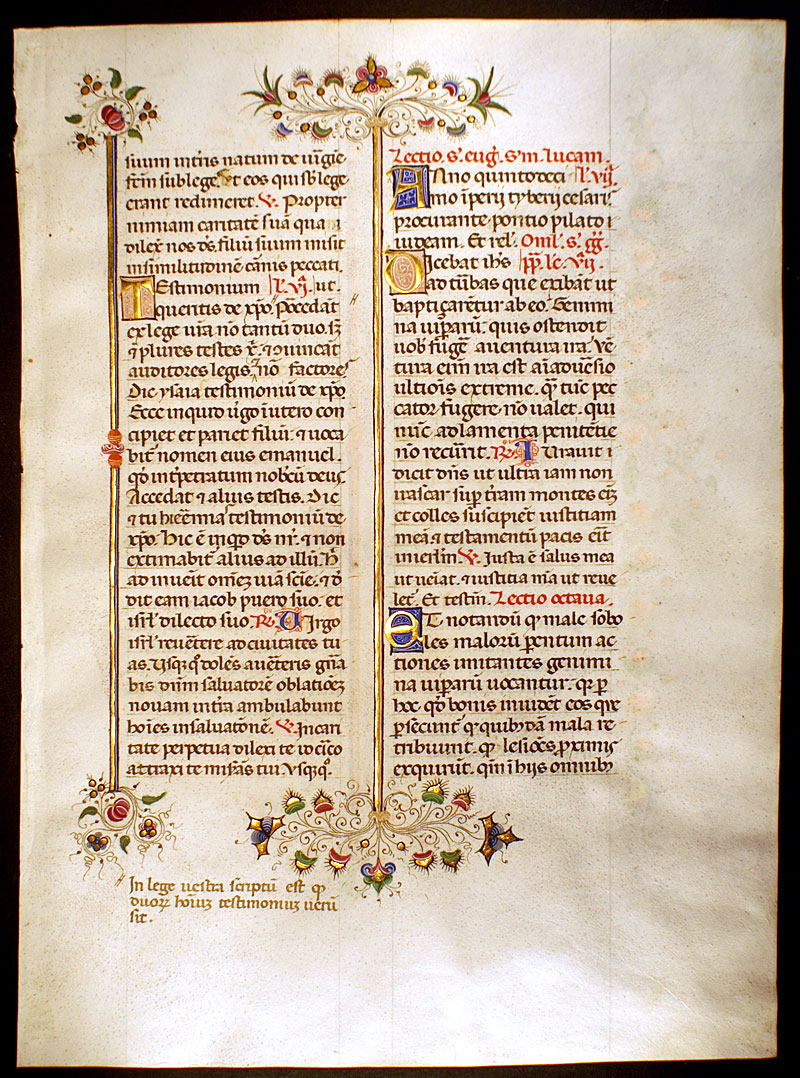 suum in t'ris natum de uirgie
f̄cm sub lege. ut eos qui sub lege
erant redimeret. ℣. Propter
nimiam caritatē suā qua
dilex' nos d̄s filiū suum misit
in similitudinē carnis peccati.
Testimonium l'. vi. ut.
queritis de xp̄o. Procedāt
ex lege ur̄a nō tantū duo. sꝫ
⁊ plures testes x̄. ⁊ cōuincāt
auditores legis. nō factores.
Dic ysaia testimoniū de xp̄o
Ecce inquid uirgo ī utero con
cipiet et pariet filiū. ⁊ uoca
bit' nomen eius emanuel.
qd̄ int'pretatum nobcū deus
Accedat ⁊ alius testis. Dic
⁊ tu hieremia testimoniū de
xp̄o. Hic ē inquid d̄s nr̄. ⁊ non
extimabit' alius ad illū. H̄
ad inuenit omnē uiā scīe. ⁊ d̄
dit eam iacob puero suo. et
isrl' dilecto suo. ℟. Uirgo
isrl' reuertere ad ciuitates tu
as. Usqꝫ q̊ dolēs auerteris gn̄a
bis dn̄m saluatorē oblationē
nouam in t'ra ambulabunt
hoīes in saluatōnē. ℣. In cari
tate perpetua dilexi te ideo
attraxi te mis̄ans tui. Usqꝫ q̊.
In lege uestra scriptū est q̄
duorꝝ hoīuꝫ testimoniuꝫ uerū
sit.
Lectio. s. eug. s'm. lucam.
Anno quintodeci l'. vii.
mo īperii tyberii cesaris
procurante pontio pilato ī
iudeam. Et rel'. Omī. s. gḡ.
Dicebat ih̄s pp̄. le. vii.
ad tūbas que exibāt ut
baptiçarētur ab eo. Gemmi
na uiparū. quis ostendit
uob' fug'e a uentura ira. Vē
tura eim ira est aīaduersio
ultiōis extreme. q̄m tūc pec
cator fugere nō ualet. qui
nūc ad lamenta penitētie
nō recurit. ℟. Iurauit ī
dicit dn̄s ut ultra iam non
irascar sup t'ram montes eīꝫ
et colles suscipiēt iustitiam
meā. ⁊ testamentū pacis eīt
in ierlm̄. ℣. Iusta ē salus mea
ut ueīat. ⁊ iustitia m̄a ut reue
let'. Et testm̄. Lectio octaua.
Et notandū q̄ male sobo
les malorū parentum ac
tiones imitantes genimi
na uiparū uocantur. qr̄ p
hoc qd̄ bonis inuidēt eos qꝫ
psecūnt' q̄ quibꝫdā mala re
tribuunt. q̄ lesiōes proximis
exquirūt. qm̄ ī hiis omnibꝫ